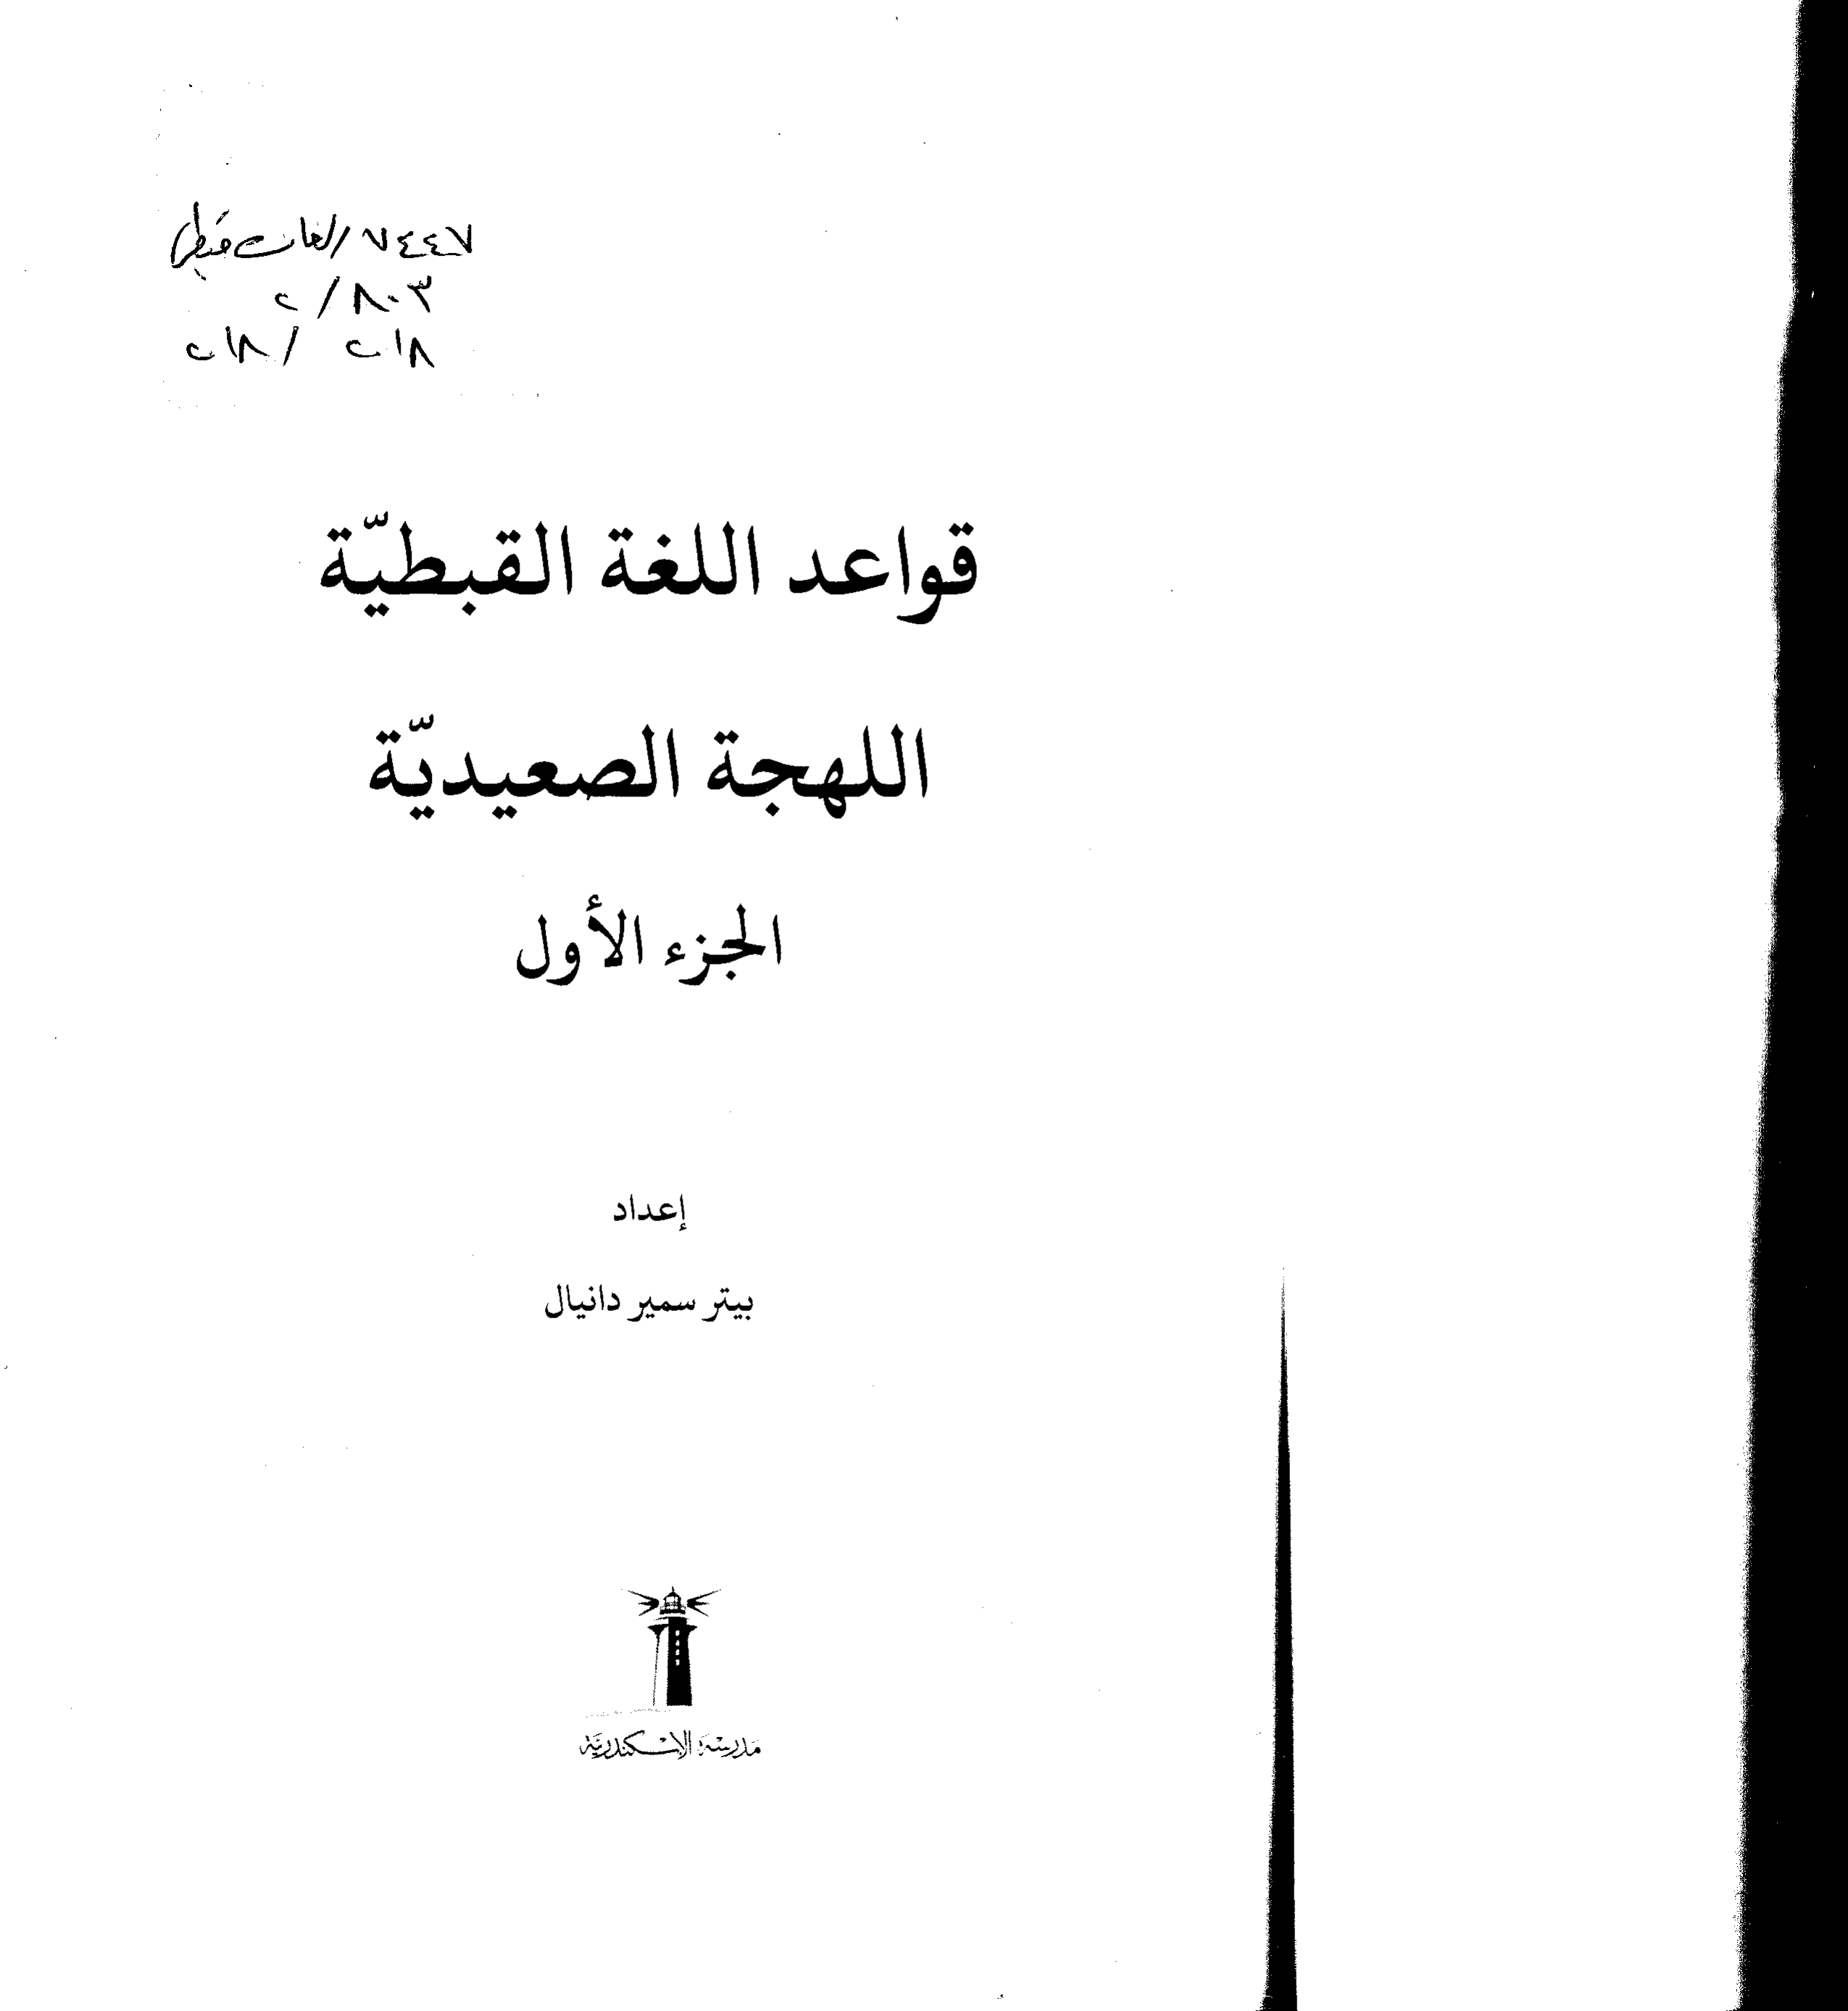 ٧٤٤٧ /لغات قبطي
٨٠٣ / ٢
قواعد اللغة القبطيّة
اللهجة الصعيديّة
الجزء الأول
إعداد
بيتر سمير دانيال
مدرسة الإسكندرية